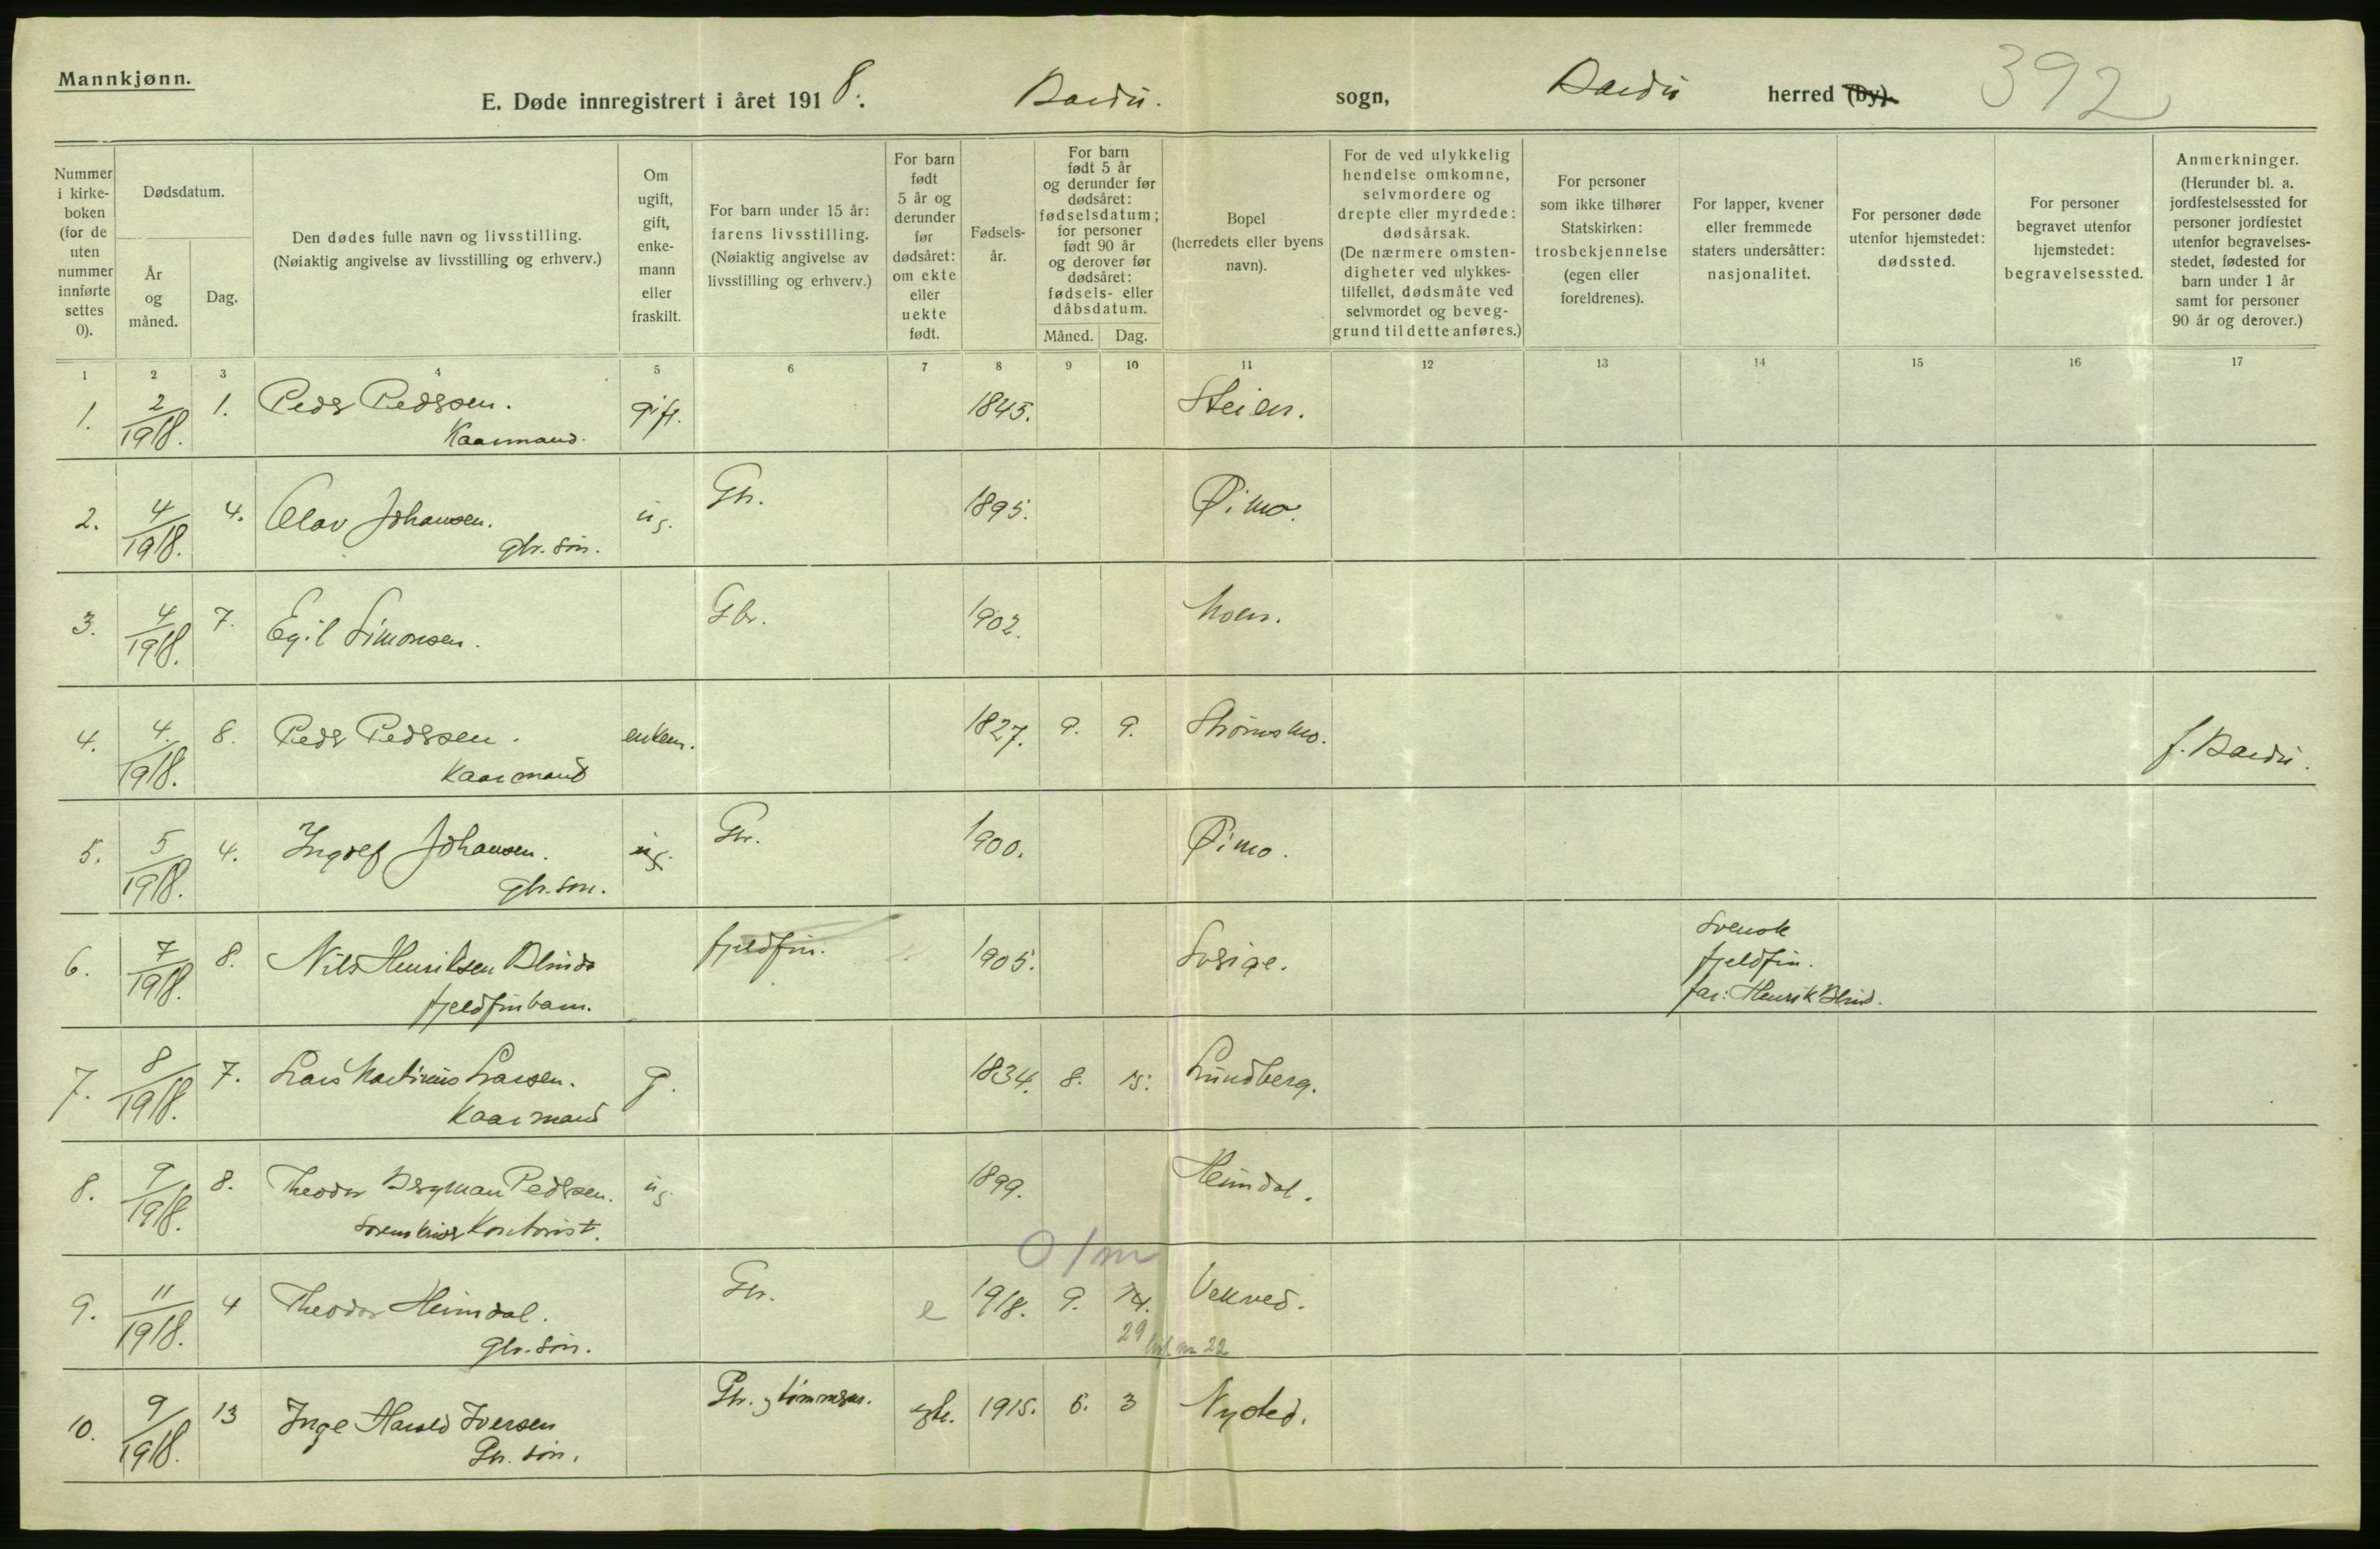 Mannkjønn.
E. Døde innregistrert i året 1918. Bardu. sogn, Bardu herred (by). 392
Nummer i kirke-boken (for de uten nummer innførte settes 0).
Dødsdatum.
År og måned.
Dag.
Den dødes fulle navn og livsstilling.
(Nøiaktig angivelse av livsstilling og erhverv.)
Om ugift, gift, enke-mann eller fraskilt.
For barn under 15 år: farens livsstilling.
(Nøiaktig angivelse av livsstilling og erhverv.)
For barn født 5 år og derunder før dødsåret: om ekte eller uekte født.
Fødsels-år.
For barn født 5 år og derunder før dødsåret: fødselsdatum; for personer født 90 år og derover før dødsåret: fødsels- eller dåbsdatum.
Måned. Dag.
Bopel (herredets eller byens navn).
For de ved ulykkelig hendelse omkomne, selvmordere og drepte eller myrdede: dødsårsak.
(De nærmere omsten-digheter ved ulykkes-tilfellet, dødsmåte ved selvmordet og beveg-grund til dette anføres.)
For personer som ikke tilhører Statskirken: trosbekjennelse (egen eller foreldrenes).
For lapper, kvener eller fremmede staters undersåtter: nasjonalitet.
For personer døde utenfor hjemstedet: dødssted.
For personer begravet utenfor hjemstedet: begravelsessted.
Anmerkninger.
(Herunder bl. a. jordfestelsessted for personer jordfestet utenfor begravelses-stedet, fødested for barn under 1 år samt for personer 90 år og derover.)
1 2 3 4 5 6 7 8 9 10 11 12 13 14 15 16 17
1. 2/1918. 1. Peder Pedersen. gift. 1845. Steien.
Kaarmand.
2. 4/1918. 4. Olav Johansen. ug. Gbr. 1895. Øimo.
gbr. søn.
3. 4/1918. 7. Egil Simonsen. Gbr. 1902. Moen.
4. 4./1918. 8. Peder Pedersen. enkem. 1827. 9. 9. Strømsmo. f. Bardu.
Kaarmand
5. 5/1918. 4. Ingolf Johansen. ug. Gbr. 1900. Øimo.
gbr. søn.
6. 7/1918. 8. Nils Henriksen Blind fjeldfin. 1905. Sverige. Svensk
fjeldfin.
fjeldfinbarn. far: Henrik Blind.
7. 8/1918. 7. Lars Martinus Larsen. g. 1834. 8. 15. Lundberg.
Kaarmand
8. 9/1918. 8. Theodor Bergman Pedersen. ug. 1899. Heimdal.
Sorenskriver Kontorist.
0/m
9. 11/1918. 4 Theodor Heimdal. Gbr. e 1918. 9. 14. Vekved.
gbr. søn. 29 nr 22
10. 9/1918. 13 Inge Harald Iversen Gbr. og tømmerm. egte. 1915. 6. 3 Nysted.
Gbr. søn.